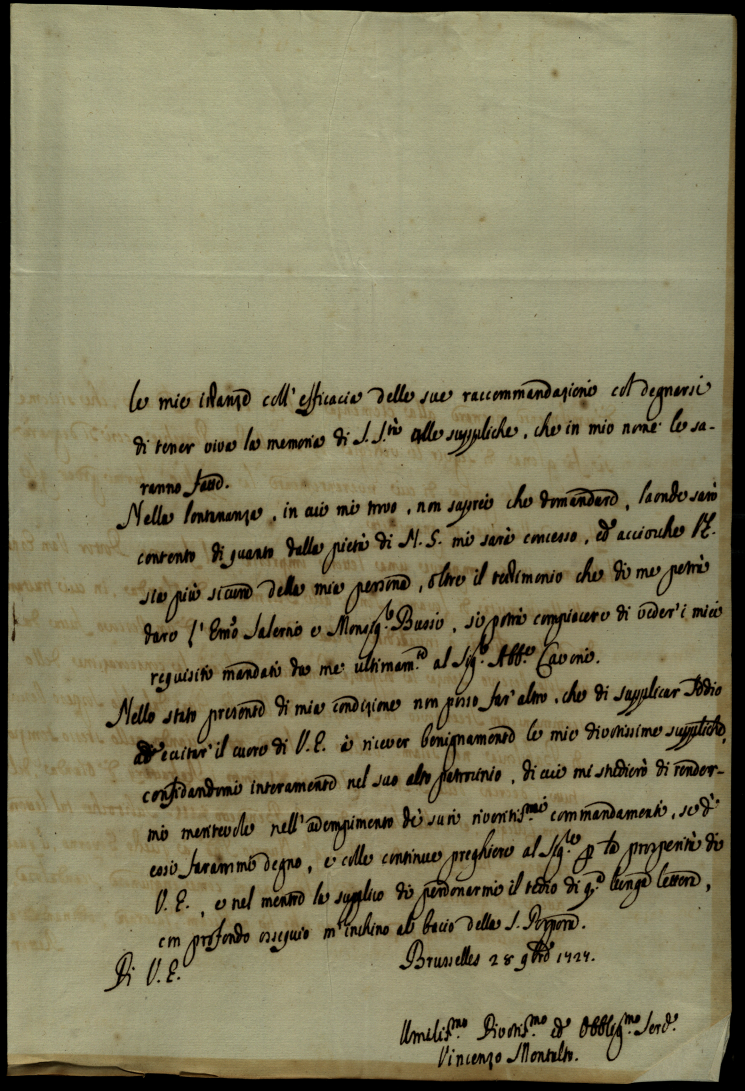 le mie istanze coll'efficacia delle sue raccommandazioni col degnarsi
di tener viva la memoria di S. S.tà alle suppliche, che in mio nome le sa-
ranno fatte.
Nella lontananza, in cui mi trovo, non saprei che domandare, laonde sarò
contento di quanto dalla pietà di N. S. mi sarà concesso, ed acciocche V.E.
sia più sicura della mia persona, oltre il testimonio che di me potrà
dare l'Emo Salerno e Monsig.r Bussi, si potrà compiacere di veder i miei
requisiti mandati da me ultimam.te al Sig.r Abb.e Cavoni.
Nello stato presente di mia condizione non posso far altro, che di supplicar Iddio
ad eccitar il cuore di V. E. à ricever benignamente le mie divotissime suppliche,
confidandomi interamente nel suo alto patrocinio, di cui mi studierò di render-
mi meritevole nell'adempimento de suoi riveritis.mi commandamenti, se d'
essi farammi degno, e colle continue preghiere al Sig.re p la prosperità di
V. E., e nel mentre la supplico di perdonarmi il tedio di q.a lunga lettera,
con profondo ossequio m'inchino al bacio della S. Porpora.
Di V. E.
Brusselles 28 9bre 1727.
Umilis.mo Divotis.mo ed Obblig.mo Serv.e
Vincenzo Montalto.